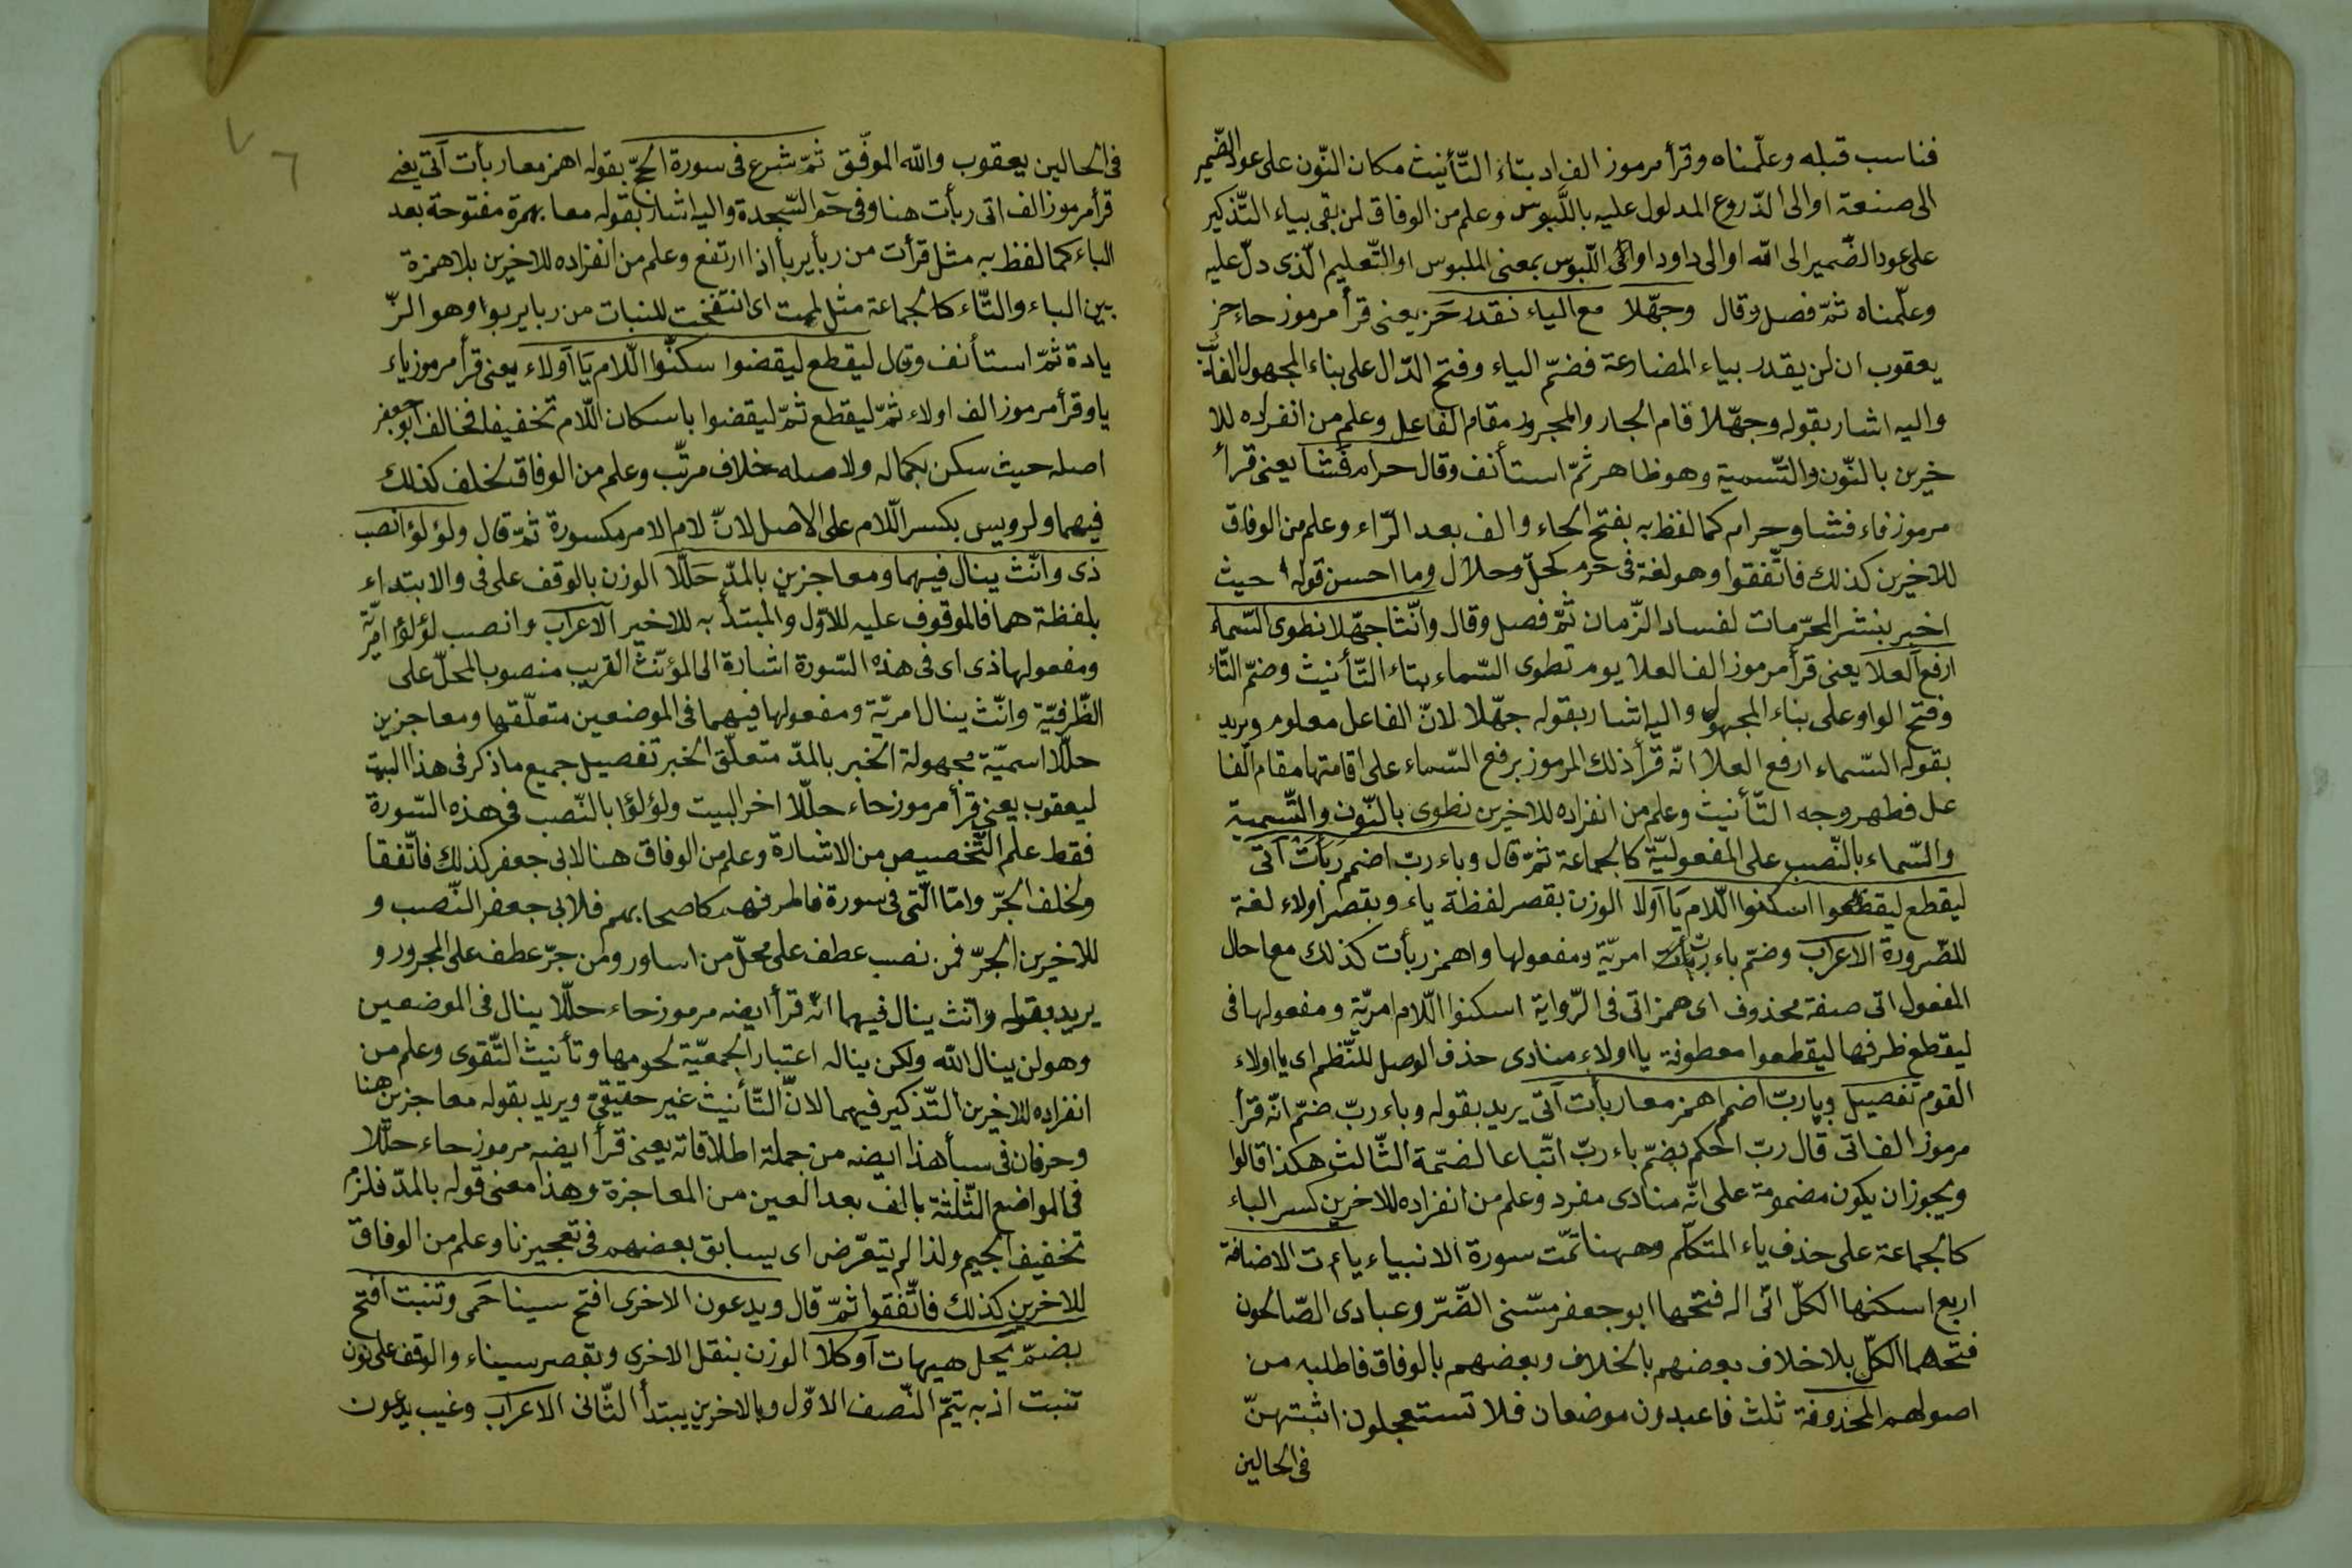 فناسب قبله وعلّمناه وقرأ مرموز الف اد بتاء التّأنيث مكان النّون على عود الضّمير
الى صنعة او الى الدّروع المدلول عليه باللّبوس وعلم من الوفاق لمن بقى بياء التّذكير
على عود الضّمير الى الله او الى داود او الى اللّبوس بمعنى الملبوس او التّعليم الّذى دلّ عليه
وعلّمناه ثمّ فصل وقال وجهّلا مع الياء نقدر حَز يعنى قرأ مرموز حاء حز
يعقوب ان لن يقدر بياء المضارعة فضمّ الياء وفتح الدّال على بناء المجهول الغائب
واليه اشار بقوله وجهّلا قام الجار والمجرور مقام الفاعل وعلم من انفراده للا
خيرين بالنّون والتّسمية وهو ظاهر ثمّ استأنف وقال حرام فشا يعنى قرأ
مرموز فاء فشا وحرام كما لفظ به بفتح الحاء والف بعد الرّاء وعلم من الوفاق
للاخيرين كذلك فاتّفقوا وهو لغة فى حرم كحلّ وحلال وما احسن قوله حيث
اخبر بنشر المحرّمات لفساد الزّمان ثمّ فصل وقال وانّثا جهّلا نطوى السّماء
ارفع العلا يعنى قرأ مرموز الف العلا يوم تطوى السّماء بتاء التّأنيث وضمّ التّاء
وفتح الواو على بناء المجهول واليه اشار بقوله جهّلا لانّ الفاعل معلوم ويريد
بقوله السّماء ارفع العلا انّه قرأ ذلك المرموز برفع السّماء على اقامتها مقام الفا
عل فظهر وجه التّأنيث وعلم من انفراده للاخيرين نطوى بالنّون والتّسمية
والسّماء بالنّصب على المفعوليّة كالجماعة ثمّ قال وباء ربّ اضمم ربأت اتى
ليقطع ليقطعوا اسكنوا اللّام يا اولا الوزن بقصر لفظة ياء وبقصر اولاء لغة
للضّرورة الاعراب وضمّ باء ربّ امريّة ومفعولها واهمز ربأت كذلك معا حال
المفعول اتى صفة محذوف اى همز اتى فى الرّواية اسكنوا اللّام امريّة ومفعولها فى
ليقطع ظرفها ليقطعوا معطوفة يا اولاء منادى حذف الوصل للنّظم اى يا اولاء
القوم تفصيل وباء ربّ اضمم اهمز معا ربأت اتى يريد بقوله وباء ربّ ضمّ انّه قرأ
مرموز الف اتى قال ربّ احكم بضمّ باء ربّ اتّباعا لضمّة الثّالث هكذا قالوا
ويجوز ان يكون مضمومة على انّه منادى مفرد وعلم من انفراده للاخيرين كسر الباء
كالجماعة على حذف ياء المتكلّم وههنا تمّت سورة الانبياء ياءات الاضافة
اربع اسكنها الكلّ انّى اله فتحها ابو جعفر مسّنى الضّرّ وعبادى الصّالحون
فتحهما الكلّ بلا خلاف بعضهم بالخلاف وبعضهم بالوفاق فاطلبه من
اصولهم المحذوفة ثلث فاعبدون موضعان فلا تستعجلون اثبتهنّ
فى الحالين
فى الحالين يعقوب والله الموفّق ثمّ شرع فى سورة الحجّ بقوله اهمز معا ربأت اتى يعنى
قرأ مرموز الف اتى ربأت هنا وفى حم السّجدة واليه اشار بقوله معا بهمزة مفتوحة بعد
الباء كما لفظ به مثل قرأت من ربأ يربأ اذا ارتفع وعلم من انفراده للاخيرين بلا همزة
بين الباء والتّاء كالجماعة مثل لمت اى انتفخت للنبات من ربا يربوا وهو الزّ
يادة ثمّ استأنف وقال ليقطع ليقضوا سكنّوا اللّام يا اولاء يعنى قرأ مرموز ياء
يا وقرأ مرموز الف اولاء ثمّ ليقطع ثمّ ليقضوا باسكان اللّام تخفيفا فخالف ابو جعفر
اصله حيث سكن بكماله ولاصله خلاف مرتّب وعلم من الوفاق لخلف كذلك
فيهما ولرويس بكسر اللّام على الاصل لانّ لام الامر مكسورة ثمّ قال ولؤلؤ انصب
ذى وانّث ينال فيهما ومعاجزين بالمدّ حلّلا الوزن بالوقف على فى والابتداء
بلفظة هما فالموقوف عليه للاوّل والمبتدأ به للاخير الاعراب وانصب لؤلؤ امريّة
ومفعولها ذى اى فى هذه السّورة اشارة الى المؤنّث القريب منصوب المحلّ على
الظّرفيّة وانّث ينال امريّة ومفعولها فيهما فى الموضعين متعلّقها ومعاجزين
حلّلا اسميّة مجهولة الخبر بالمدّ متعلّق الخبر تفصيل جميع ما ذكر فى هذا البيت
ليعقوب يعنى قرأ مرموز حاء حلّلا اخر البيت ولؤلؤا بالنّصب فى هذه السّورة
فقط علم التّخصيص من الاشارة وعلم من الوفاق هنا لابى جعفر كذلك فاتّفقا
ولخلف الجرّ وامّا الّتى فى سورة فاطر فهم كاصحابهم فلابى جعفر النّصب و
للاخيرين الجرّ فمن نصب عطف على محلّ من اساور ومن جرّ عطف على المجرور و
يريد بقوله وانّث ينال فيهما انّه قرأ ايضه مرموز حاء حلّلا ينال فى الموضعين
وهو لن ينال الله ولكن يناله اعتبار الجمعيّة لحومها وتأنيث التّقوى وعلم من
انفراده للاخيرين التّذكير فيهما لانّ التّأنيث غير حقيقى ويريد بقوله معاجزين هنا
وحرفان فى سبأ هذا ايضه من جملة اطلاقاته يعنى قرأ ايضه مرموز حاء حلّلا
فى المواضع الثّلثة بالف بعد العين من المعاجزة وهذا معنى قوله بالمدّ فلزم
تخفيف الجيم ولذا لم يتعرّض اى يسابق بعضهم فى تعجيزنا وعلم من الوفاق
للاخيرين كذلك فاتّفقوا ثمّ قال ويدعون الاخرى افتح سينا حمى وتنبت افتح
بضمّ يحل هيهات اد كلا الوزن بنقل الاخرى وبقصر سيناء والوقف على نون
تنبت اذ به يتمّ النّصف الاوّل وبالاخرين يبتدأ الثّانى الاعراب وغيب يدعون